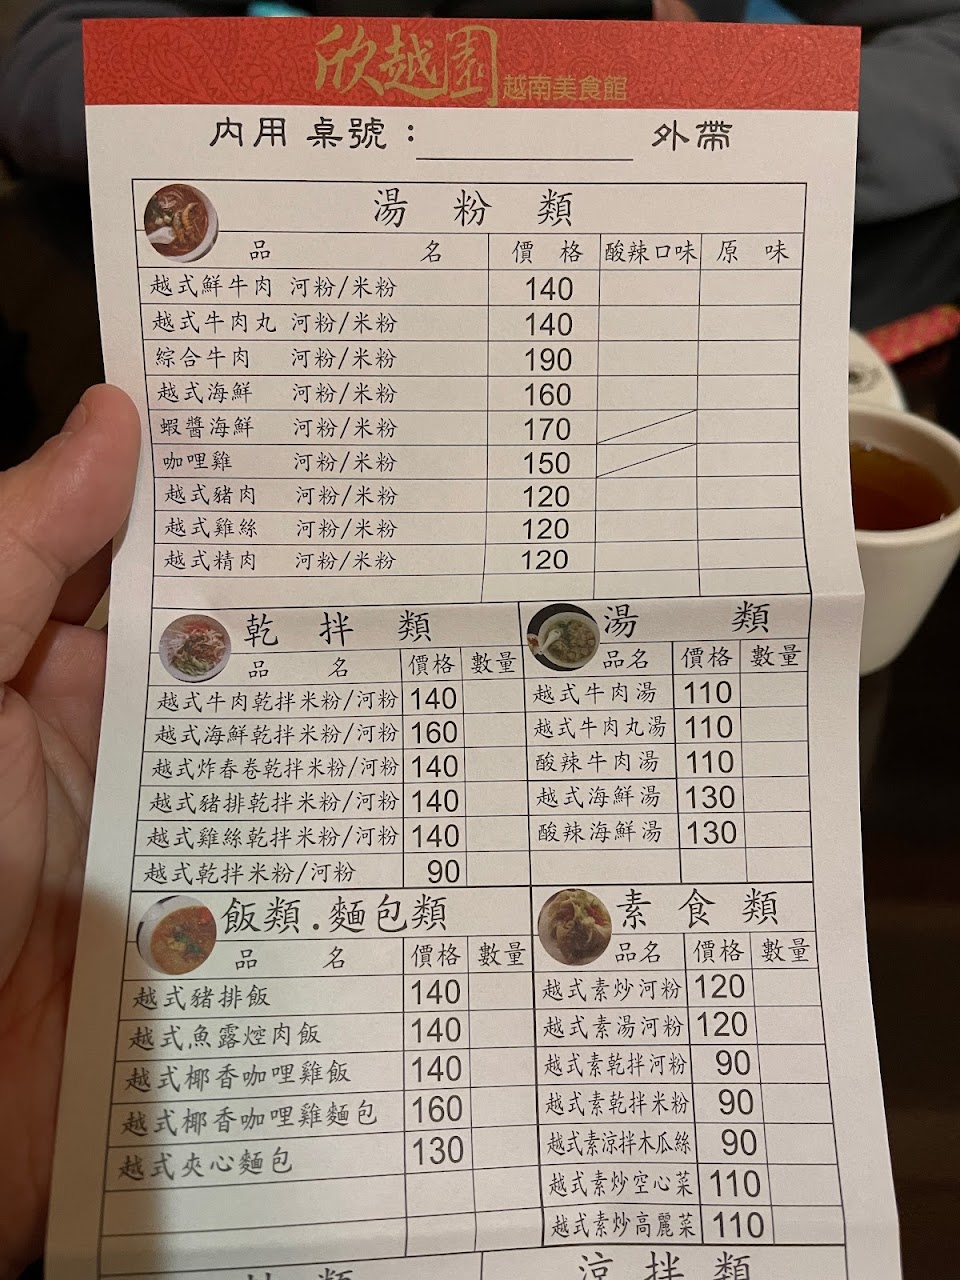 欣越園 越南美食館
內用 桌號：＿＿＿＿＿ 外帶
湯 粉 類
品 名 價 格 酸辣口味 原 味
越式鮮牛肉 河粉/米粉 140
越式牛肉丸 河粉/米粉 140
綜合牛肉 河粉/米粉 190
越式海鮮 河粉/米粉 160
蝦醬海鮮 河粉/米粉 170
咖哩雞 河粉/米粉 150
越式豬肉 河粉/米粉 120
越式雞絲 河粉/米粉 120
越式精肉 河粉/米粉 120
乾 拌 類
品 名 價格 數量
越式牛肉乾拌米粉/河粉 140
越式海鮮乾拌米粉/河粉 160
越式炸春卷乾拌米粉/河粉 140
越式豬排乾拌米粉/河粉 140
越式雞絲乾拌米粉/河粉 140
越式乾拌米粉/河粉 90
湯 類
品名 價格 數量
越式牛肉湯 110
越式牛肉丸湯 110
酸辣牛肉湯 110
越式海鮮湯 130
酸辣海鮮湯 130
飯類.麵包類
品 名 價格 數量
越式豬排飯 140
越式魚露焢肉飯 140
越式椰香咖哩雞飯 140
越式椰香咖哩雞麵包 160
越式夾心麵包 130
素 食 類
品名 價格 數量
越式素炒河粉 120
越式素湯河粉 120
越式素乾拌河粉 90
越式素乾拌米粉 90
越式素涼拌木瓜絲 90
越式素炒空心菜 110
越式素炒高麗菜 110
類
涼 拌 類